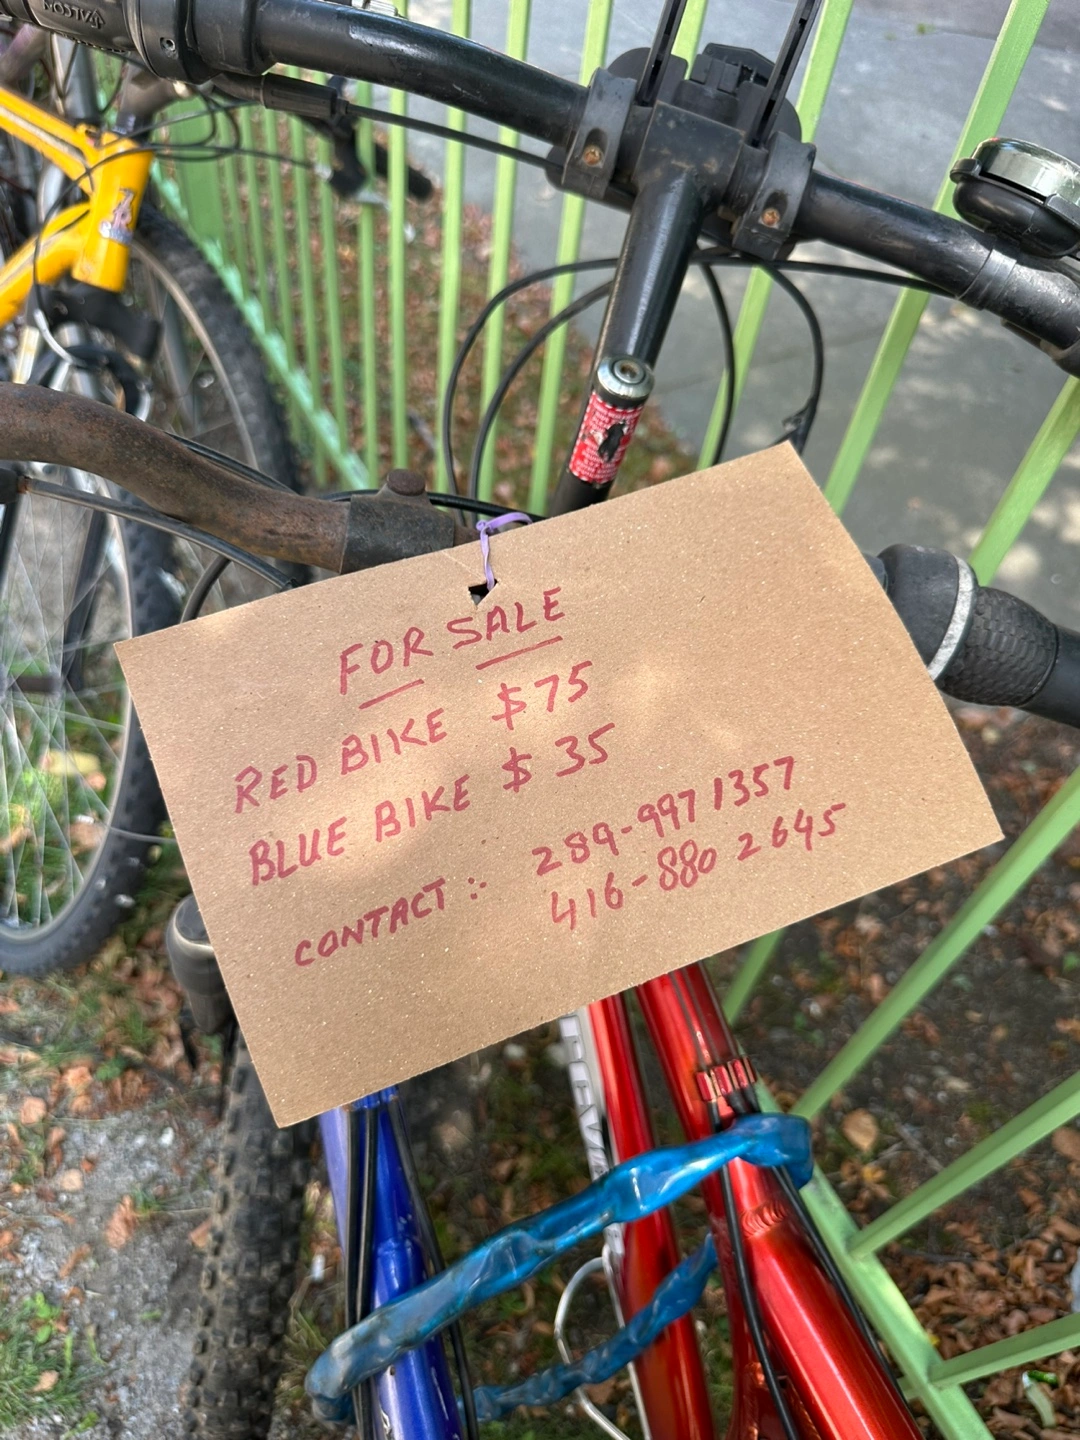 FALCON
FOR SALE
RED BIKE $75
BLUE BIKE $35
CONTACT :- 289-997 1357
416-880 2645